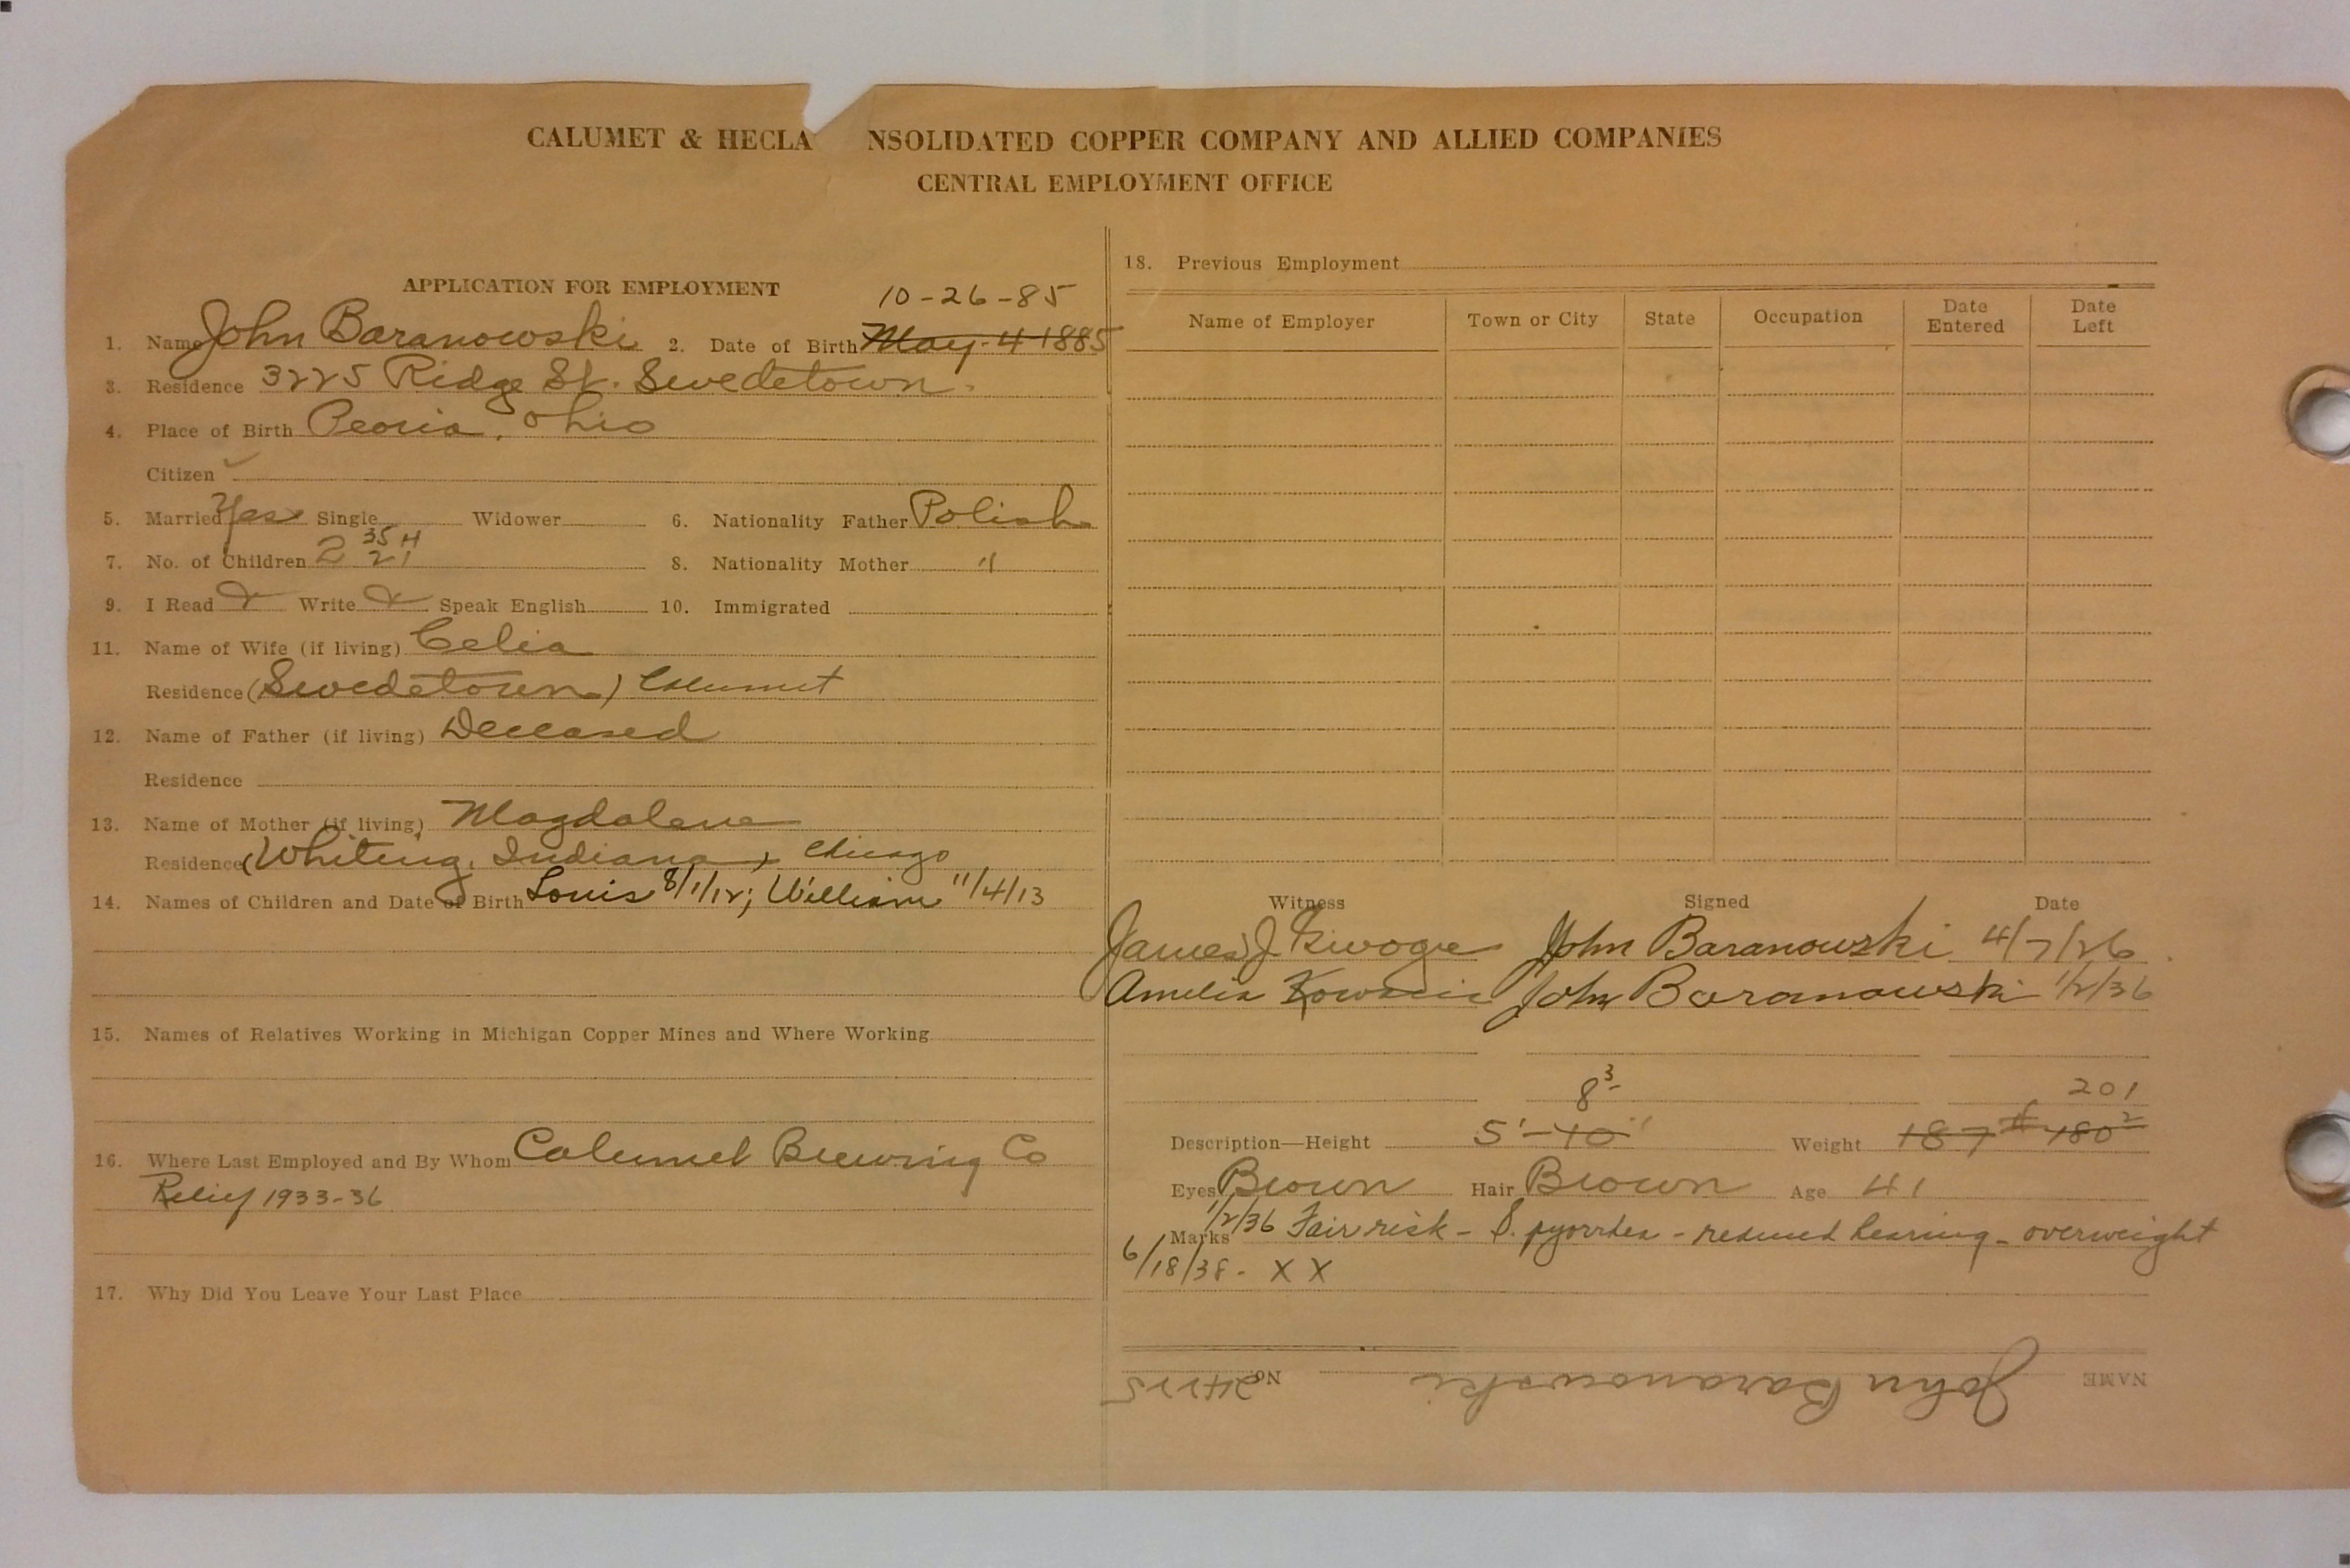 CALUMET & HECLA NSOLIDATED COPPER COMPANY AND ALLIED COMPANIES
CENTRAL EMPLOYMENT OFFICE
APPLICATION FOR EMPLOYMENT
10-26-85
1. Name John Baranowski 2. Date of Birth May-4-1885
3. Residence 3225 Ridge St. Swedetown.
4. Place of Birth Peoria, Ohio
Citizen
5. Married Yes Single Widower 6. Nationality Father Polish
35 H
7. No. of Children 2 21 8. Nationality Mother "
9. I Read Write Speak English 10. Immigrated
11. Name of Wife (if living) Celia
Residence (Swedetown) Calumet
12. Name of Father (if living) Deceased
Residence
13. Name of Mother (if living) Magdalene
Residence (Whiting, Indiana) Chicago
14. Names of Children and Date of Birth Louis 8/1/12; William 11/4/13
15. Names of Relatives Working in Michigan Copper Mines and Where Working
16. Where Last Employed and By Whom Calumet Brewing Co
Relief 1933-36
17. Why Did You Leave Your Last Place
18. Previous Employment
Name of Employer Town or City State Occupation Date Entered Date Left
Witness Signed Date
James J. John Baranowski 4/7/26
Amelia John Baranowski 1/2/36
8 3 201
Description—Height 5'-10" Weight 187# 180 2
Eyes Brown Hair Brown Age 41
Marks 1/2/36 Fair risk - S. pyorrhea - reduced hearing - overweight
6/18/38 - X X
NAME John Baranowski No. 24225